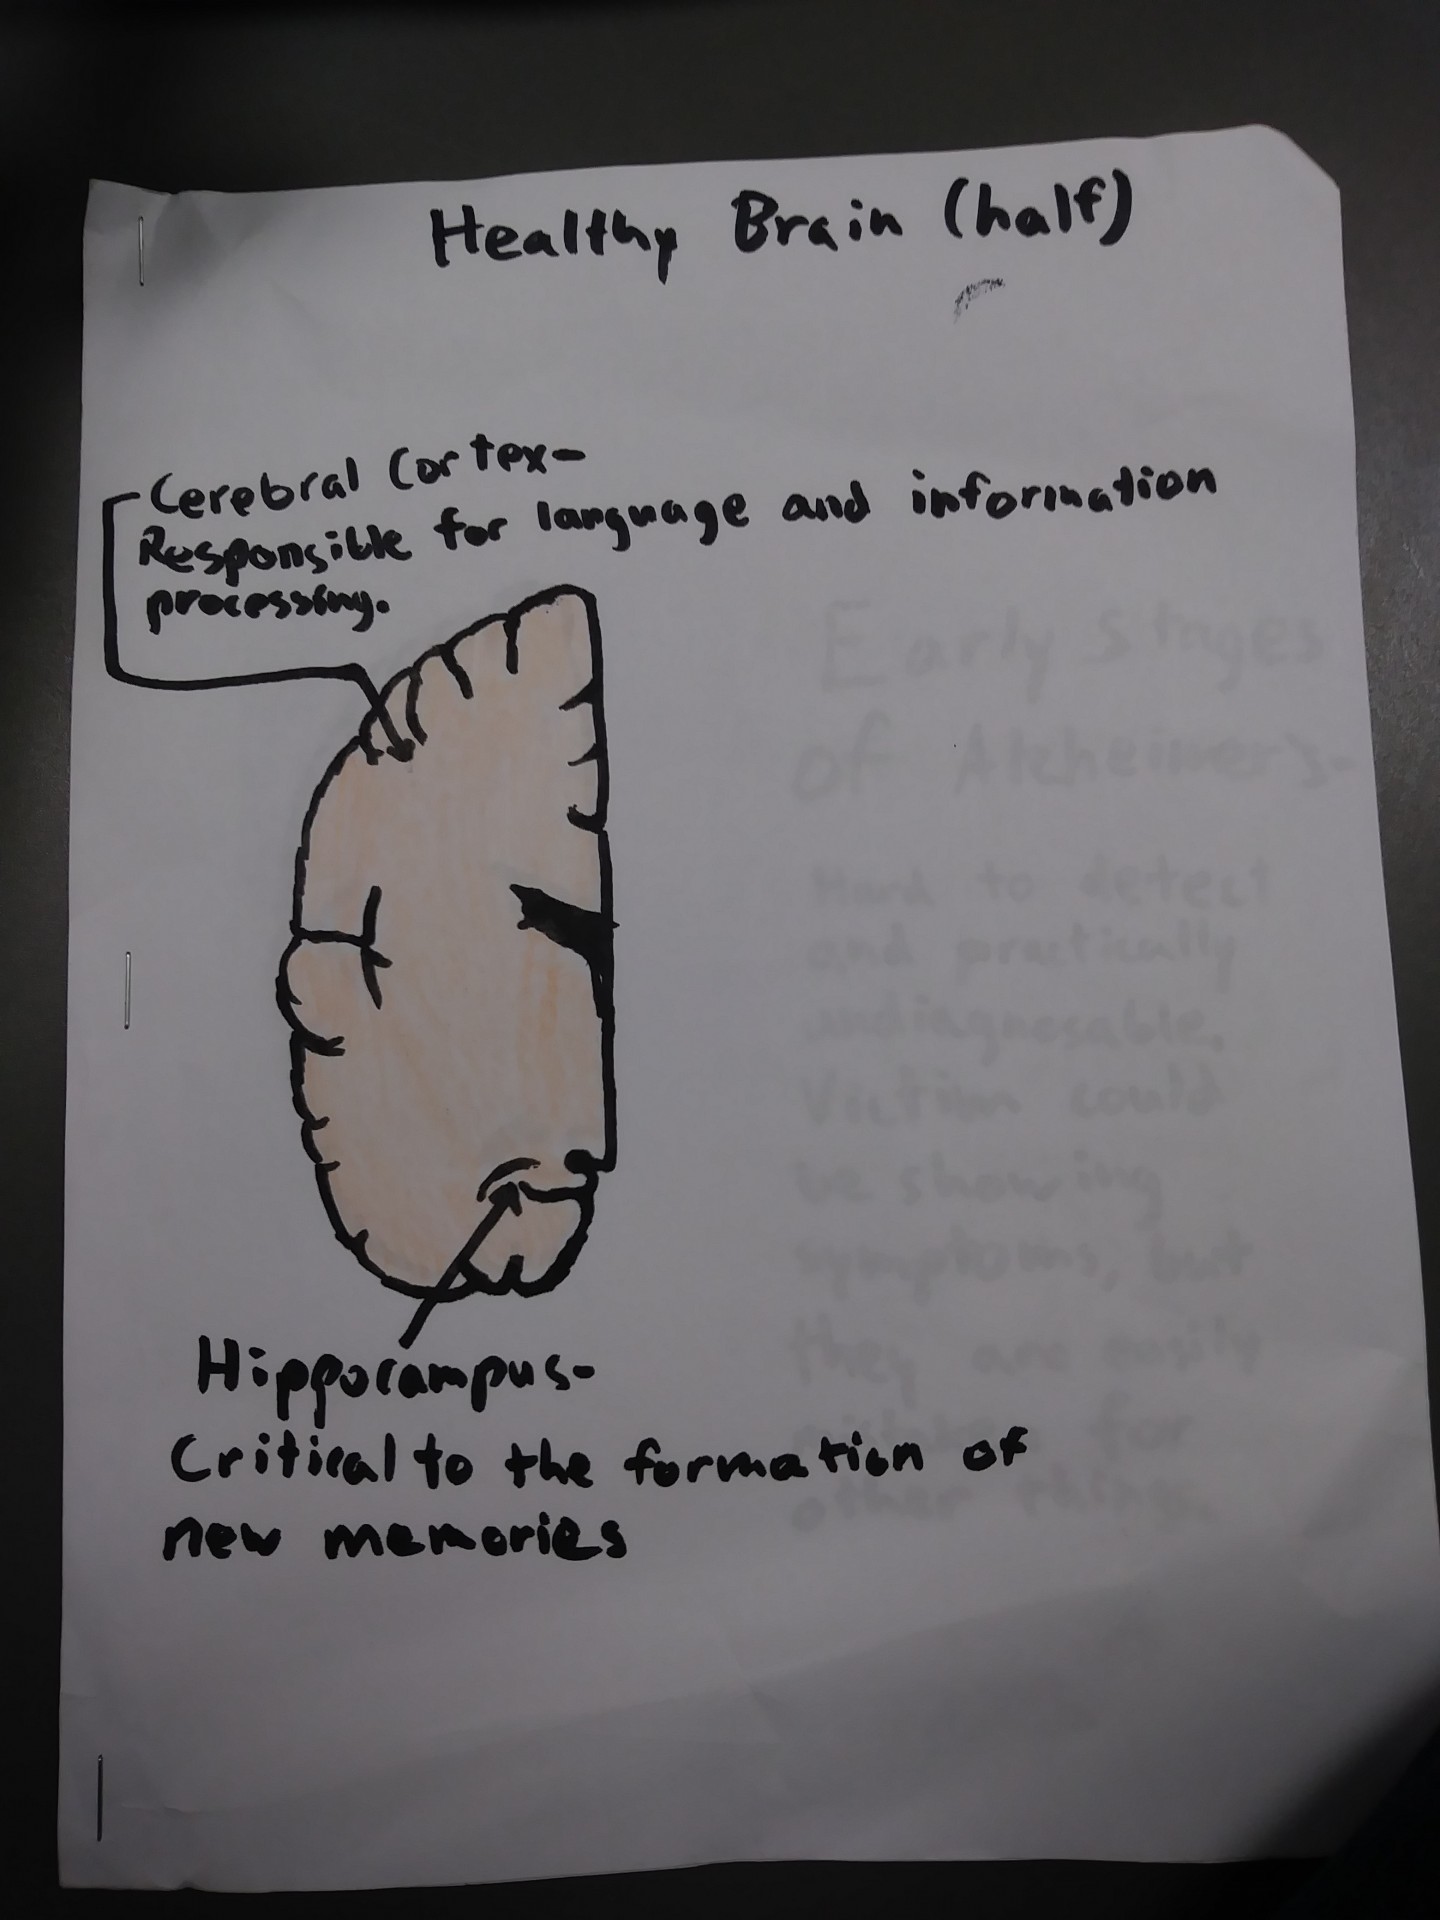 Healthy Brain (half)
Cerebral Cortex-
Responsible for language and information
processing.
Early stages
of Alzheimers-
Hard to detect
and practically
undiagnosable.
Victim could
be showing
symptoms, but
they are easily
for
other things.
Hippocampus-
Critical to the formation of
new memories